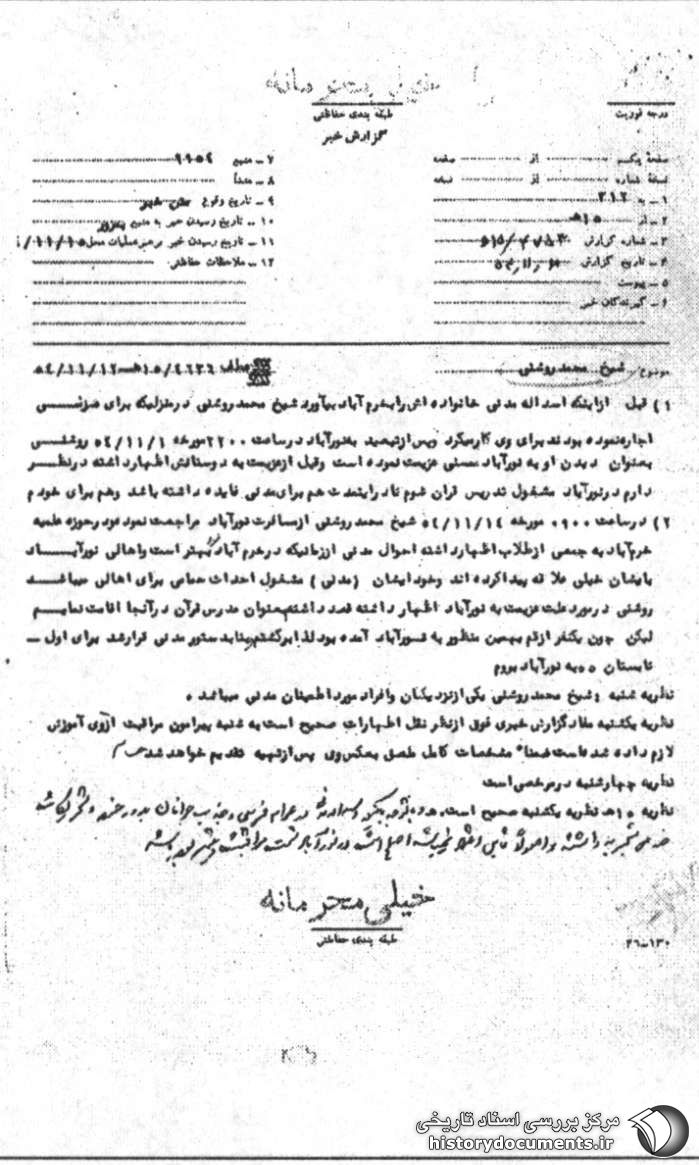 خیلی محرمانه
طبقه بندی حفاظتی
درجه فوریت
گزارش خبر
صفحه یکم از صفحه
نسخه شماره از نسخه
۱ - به ۳۱۲
۲ - از ۱۵ هـ
۳ - شماره گزارش
۴ - تاریخ گزارش
۵ - پیوست
۶ - گیرندگان خبر
۷ - منبع ۹۱۵۴
۸ - منشأ
۹ - تاریخ وقوع متن خبر
۱۰ - تاریخ رسیدن خبر به منبع بروز
۱۱ - تاریخ رسیدن خبر به رهبر عملیات محل ۱۵/۱۱/
۱۲ - ملاحظات حفاظتی
موضوع شیخ محمد روشنی عطف ۱۵/۴۶۳۶هـ ـ ۵۴/۱۱/۱۲
۱) قبل از اینکه اسداله مدنی خانواده اش را بخرم آباد بیاورد شیخ محمد روشنی در منزلیکه برای
اجاره نموده بودند برای وی کار میکرد و پس از تبعید به نورآباد در ساعت ۲۲۰۰ مورخه ۵۴/۱۱/۱ روشنی
بعنوان دیدن او به نورآباد ممسنی عزیمت نموده است و قبل از عزیمت به دوستانش اظهار داشته در نظر
دارم در نورآباد مشغول تدریس قران شوم تا در اینمدت هم برای مدنی فایده داشته باشد و هم برای خودم
۲) در ساعت ۰۹۰۰ مورخه ۵۴/۱۱/۱۴ شیخ محمد روشنی از مسافرت نورآباد مراجعت نموده و در حوزه علمیه
خرم آباد به جمعی از طلاب اظهار داشته احوال مدنی از زمانیکه در خرم آباد بود بهتر است و اهالی نورآباد
بایشان خیلی علاقه پیدا کرده اند و خود ایشان (مدنی) مشغول احداث حمامی برای اهالی میباشد
روشنی در مورد علت عزیمت به نورآباد اظهار داشته قصد داشتم بعنوان مدرس قرآن در آنجا اقامت نمایم
لیکن چون یکنفر از قم بهمین منظور به نورآباد آمده بود لذا برگشتم بنا بدستور مدنی قرار شد برای اول -
تابستان ۵۵ به نورآباد بروم
نظریه شنبه : شیخ محمد روشنی یکی از نزدیکان و افراد مورد اطمینان مدنی میباشد .
نظریه یکشنبه مفاد گزارش خبری فوق از نظر نقل اظهارات صحیح است به شنبه پیرامون مراقبت از وی آموزش
لازم داده شده است ضمناً مشخصات کامل ملصق بعکس وی پس از تهیه تقدیم خواهد شد
نظریه چهارشنبه در مرخصی است
نظریه ۱۵هـ نظریه یکشنبه صحیح است.
خیلی محرمانه
طبقه بندی حفاظتی
۲۶-۱۳۰
مرکز بررسی اسناد تاریخی
historydocuments.ir